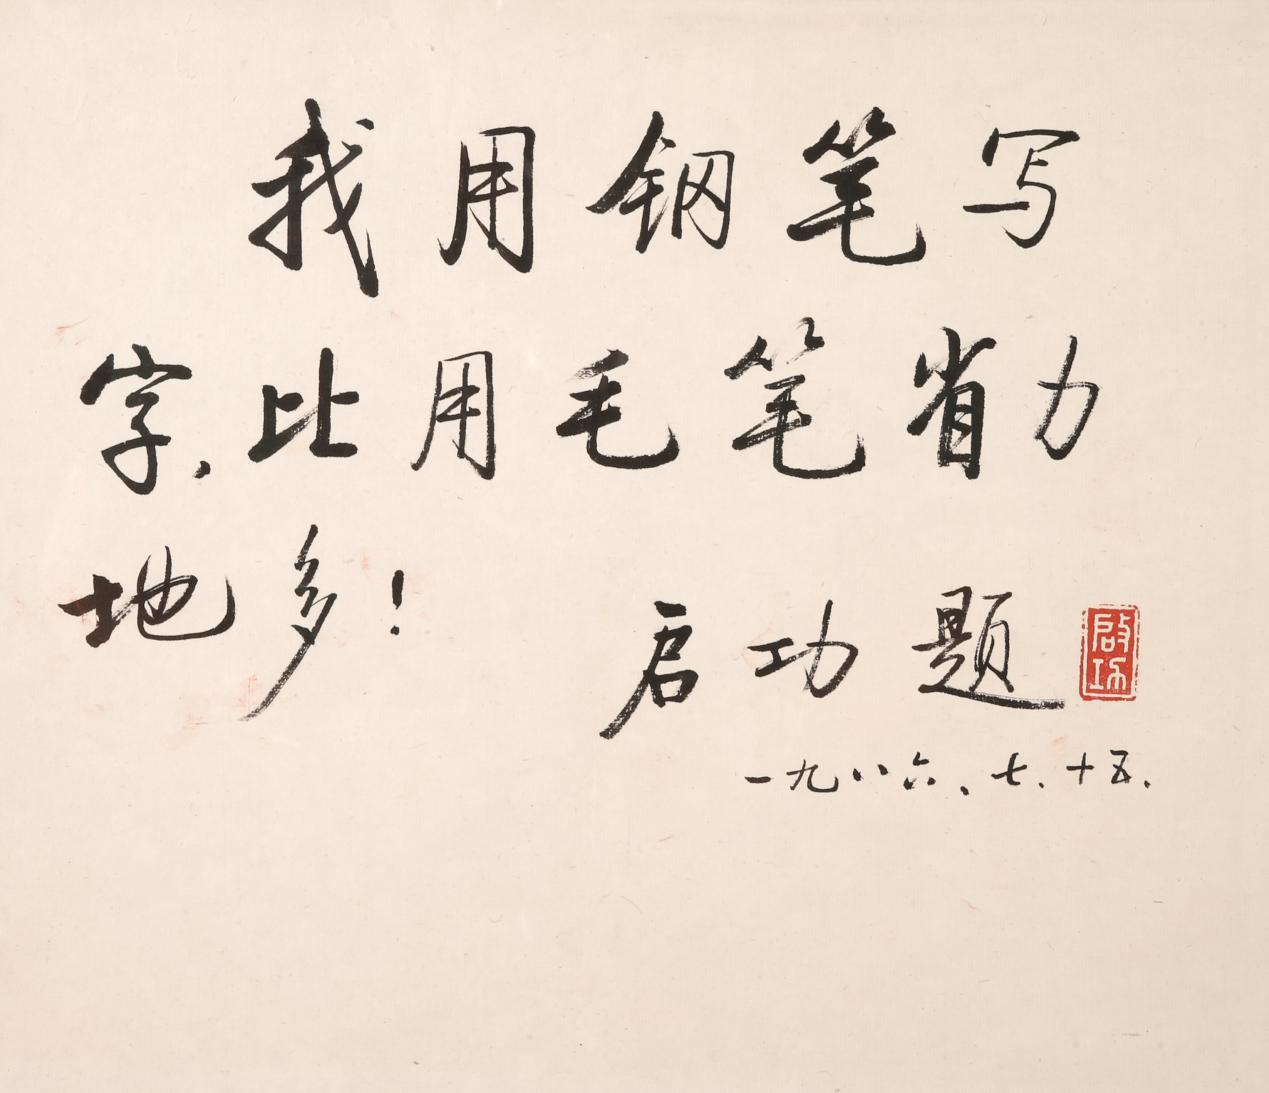 我用钢笔写
字、比用毛笔省力
地多！
启功题
启功
一九八六、七、十五、